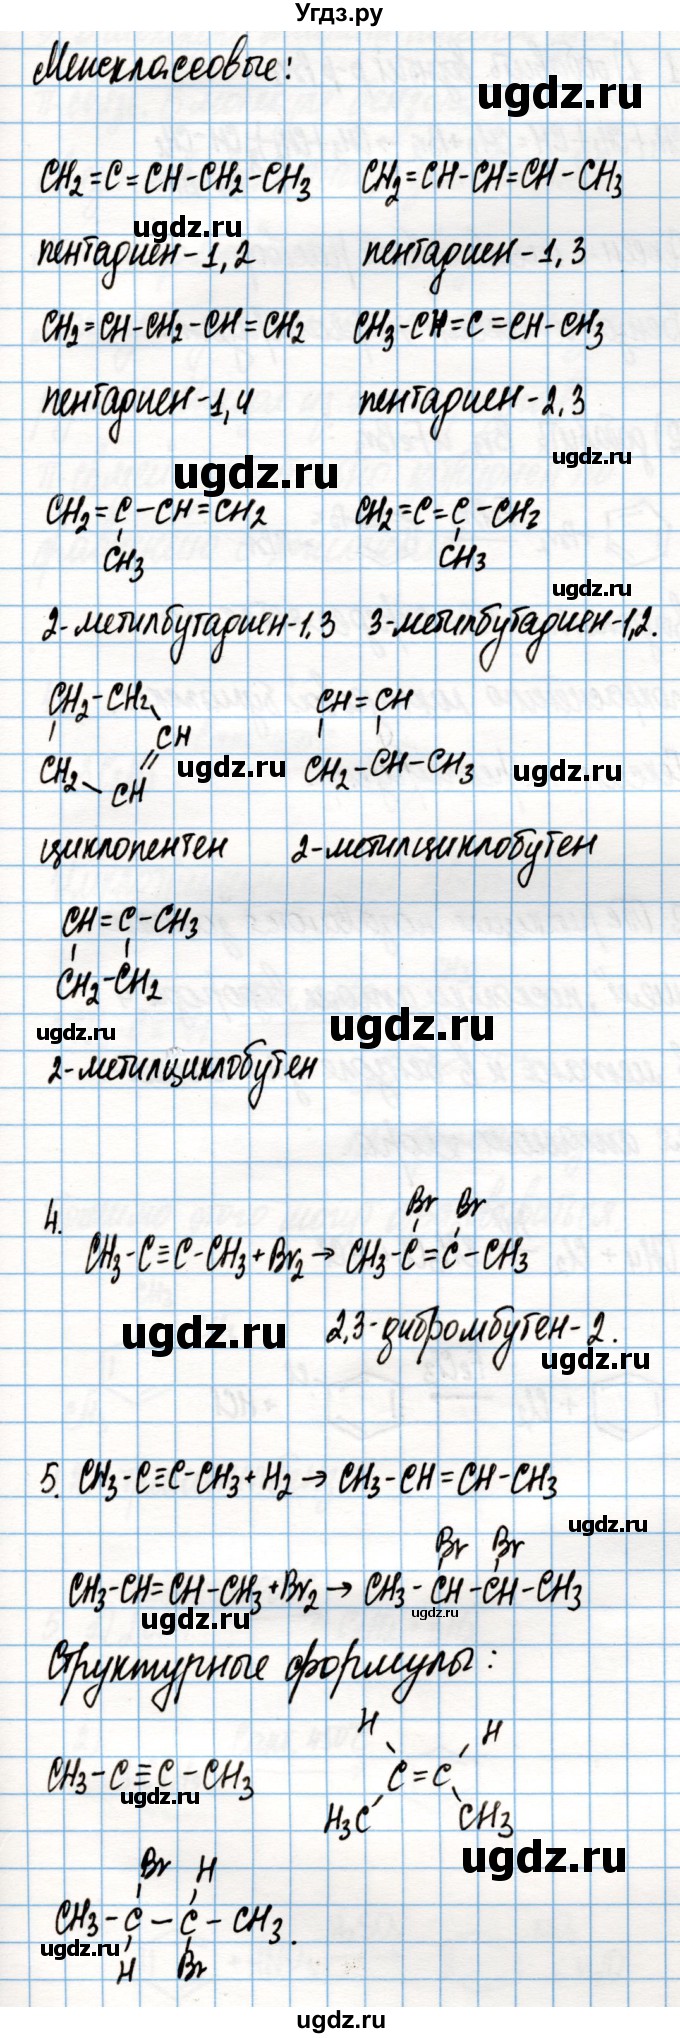 Угдз.ру
Межклассовые:
ugdz.ru
CH2=C=CH-CH2-CH3 CH2=CH-CH=CH-CH3
ugdz.ru
пентадиен-1,2 пентадиен-1,3
CH2=CH-CH2-CH=CH2 CH3-CH=C=CH-CH3
пентадиен-1,4 пентадиен-2,3
ugdz.ru ugdz.ru
CH2=C-CH=CH2 CH2=C=C-CH3
CH3 CH3
ugdz.ru
2-метилбутадиен-1,3 3-метилбутадиен-1,2.
CH2-CH2 CH=CH
CH
CH2 CH CH2-CH-CH3
ugdz.ru ugdz.ru
циклопентен 2-метилциклобутен
CH=C-CH3
CH2-CH2
ugdz.ru ugdz.ru
2-метилциклобутен
Br Br
4. CH3-C≡C-CH3+Br2→CH3-C=C-CH3
ugdz.ru 2,3-дибромбутен-2.
ugdz.ru
5. CH3-C≡C-CH3+H2→CH3-CH=CH-CH3
ugdz.ru
Br Br
CH3-CH=CH-CH3+Br2→CH3-CH-CH-CH3
ugdz.ru ugdz.ru
Структурные формулы:
H H
CH3-C≡C-CH3 C=C
ugdz.ru
H3C CH3
ugdz.ru
Br H
CH3-C-C-CH3.
ugdz.ru
H Br
ugdz.ru